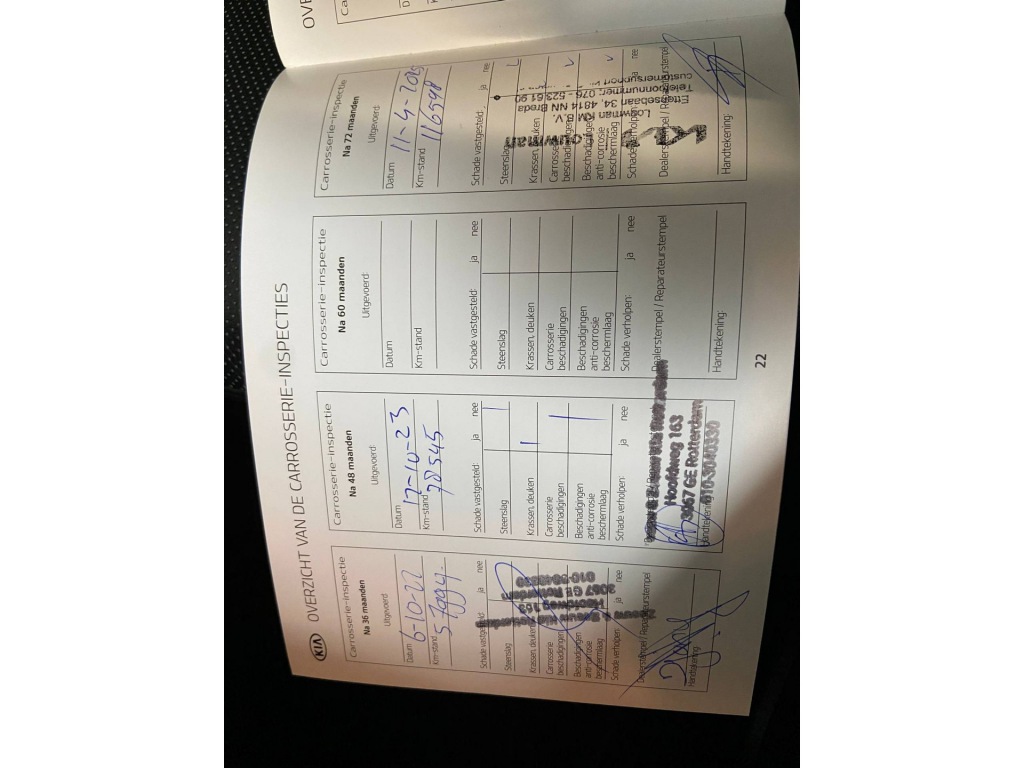 KIA OVERZICHT VAN DE CARROSSERIE-INSPECTIES
Carrosserie-inspectie
Na 36 maanden
Uitgevoerd:
Datum 6-10-22
Km-stand
Schade vastgesteld: ja nee
Steenslag
Krassen, deuken
Carrosserie
beschadigingen
Beschadigingen
anti-corrosie
beschermlaag
Schade verholpen: ja nee
Dealerstempel / Reparateurstempel
Hoofdweg 163
3067 GE Rotterdam
Handtekening:
Carrosserie-inspectie
Na 48 maanden
Uitgevoerd:
Datum 17-10-23
Km-stand 78545
Schade vastgesteld: ja nee
Steenslag
Krassen, deuken
Carrosserie
beschadigingen
Beschadigingen
anti-corrosie
beschermlaag
Schade verholpen: ja nee
Hoofdweg 163
3067 GE Rotterdam
010-3040330
Handtekening:
Carrosserie-inspectie
Na 60 maanden
Uitgevoerd:
Datum
Km-stand
Schade vastgesteld: ja nee
Steenslag
Krassen, deuken
Carrosserie
beschadigingen
Beschadigingen
anti-corrosie
beschermlaag
Schade verholpen: ja nee
Dealerstempel / Reparateurstempel
Handtekening:
Carrosserie-inspectie
Na 72 maanden
Uitgevoerd:
Datum 11-4-2025
Km-stand 116598
Schade vastgesteld: ja nee
Steenslag
Krassen, deuken
Carrosserie
beschadigingen
Beschadigingen
anti-corrosie
beschermlaag
Schade verholpen: ja nee
Dealerstempel / Reparateurstempel
Louwman
Louwman KM B.V.
Ettensebaan 34, 4814 NN Breda
Telefoonnummer: 076 - 523 61 90
customersupport
Handtekening:
22